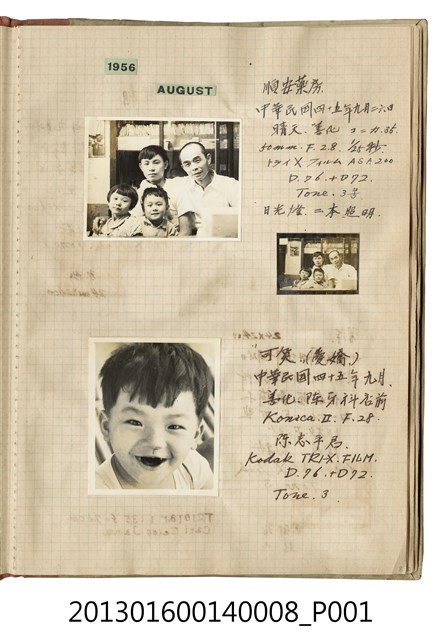 1956
AUGUST
順安藥房
中華民國四十五年九月二六日
晴天. 善化 コニカ.35.
50mm. F. 2.8. 1/25秒.
トライX フィルム ASA.200
D.76.+D72.
Tone. 3号
日光燈. 二本照明.
"可笑"(愛嬌)
中華民国四十五年九月.
善化. 陳牙科店前
Konica. II. F.28
陳志平君.
Kodak TRI-X. FILM.
D.76.+D72.
Tone. 3.
201301600140008_P001